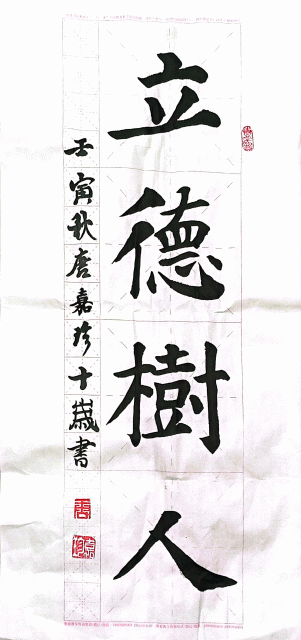 立德樹人
壬寅秋唐嘉珍十歲書